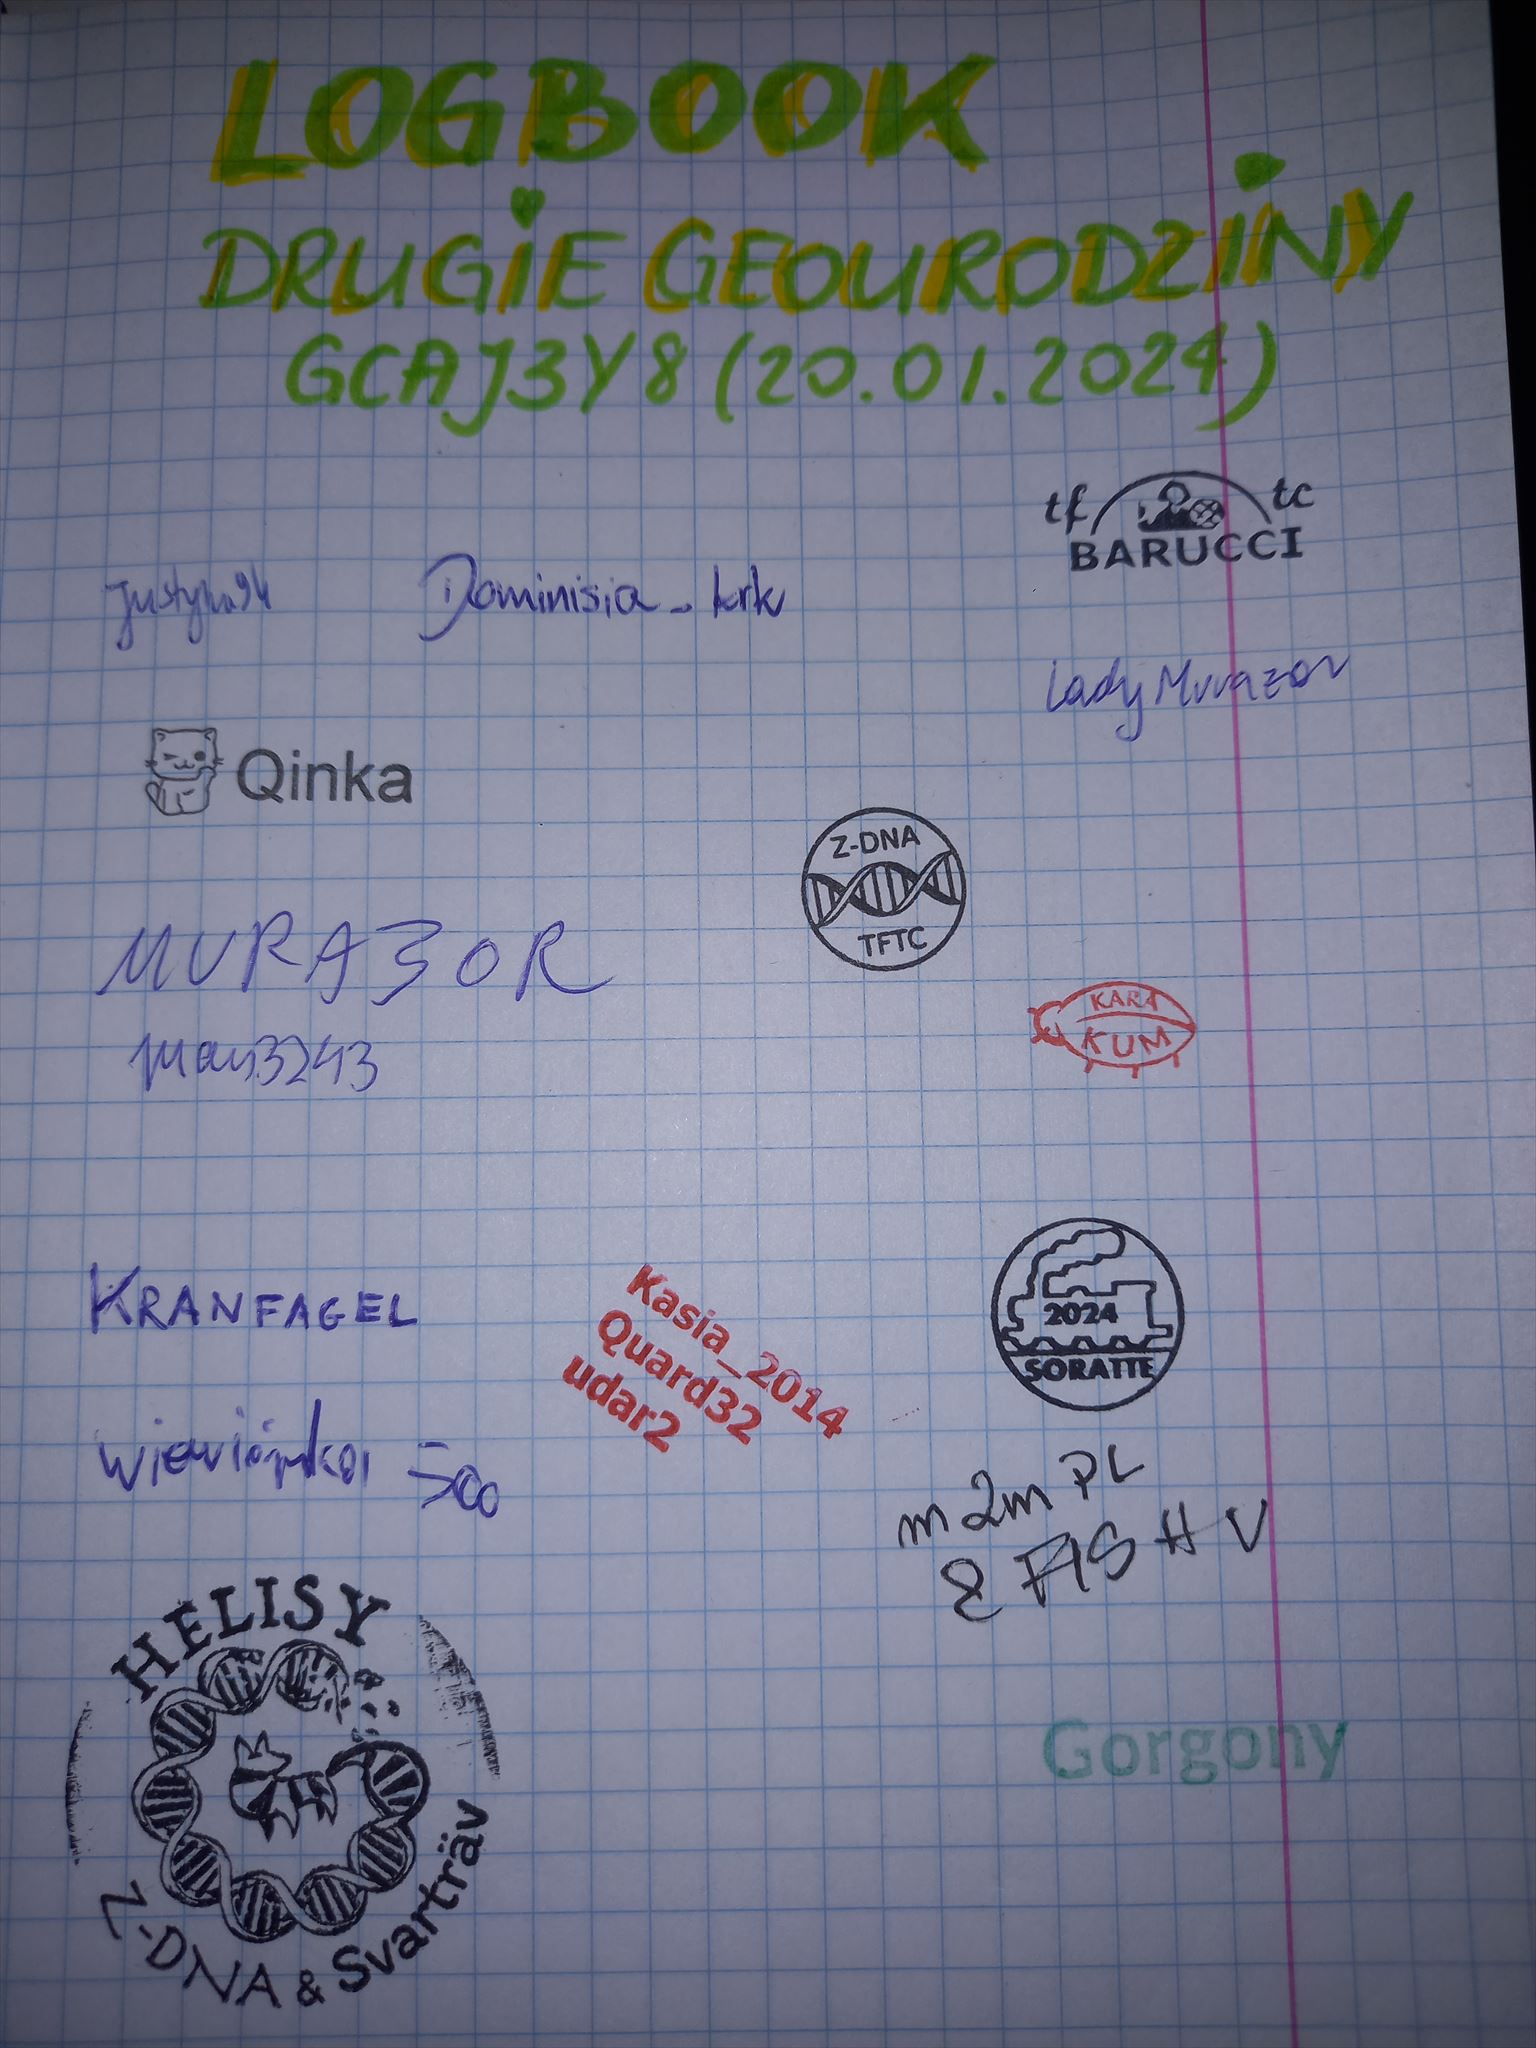 LOGBOOK
DRUGiE GEOURODZiNY
GCAJ3Y8 (20.01.2024)
tf tc
BARUCCI
Justyna94
Dominisia_krk
Lady Murazor
Qinka
Z-DNA
TFTC
MURAZOR
KARA
KUM
KRANFAGEL
Kasia_2014
Quard32
udar2
2024
SORATTE
wiewiórka 500
m2m PL
& FISHV
HELISY
Z-DNA & Svarträv
Gorgony